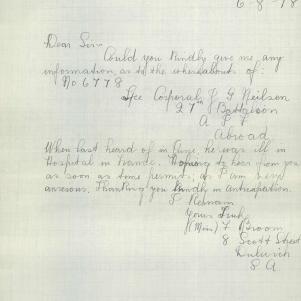 6-8-18
Dear Sir
Could you kindly give me, any
information, as to the whereabouts of:
No 6778
Lce Corporal J G Neilson
27th Battalion
A I F
Abroad
When last heard of in June, he was ill in
Hospital in France. Hoping to hear from you
as soon as time permits, as I am very
anxious, Thanking you kindly in anticipation.
I Remain
Yours Truly
(Miss) F Broom
8 Scott Street
Dulwich
S A